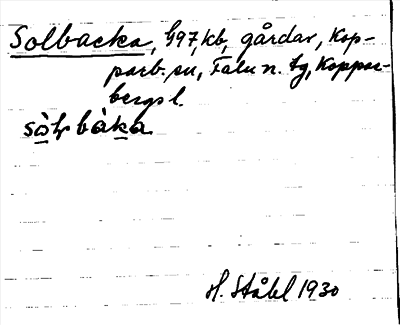 Solbacka, G97, kb, gårdar, Kop-
parb. sn, Falu n. tg, Koppar-
bergs l.
bàka
H. Ståhl 1930